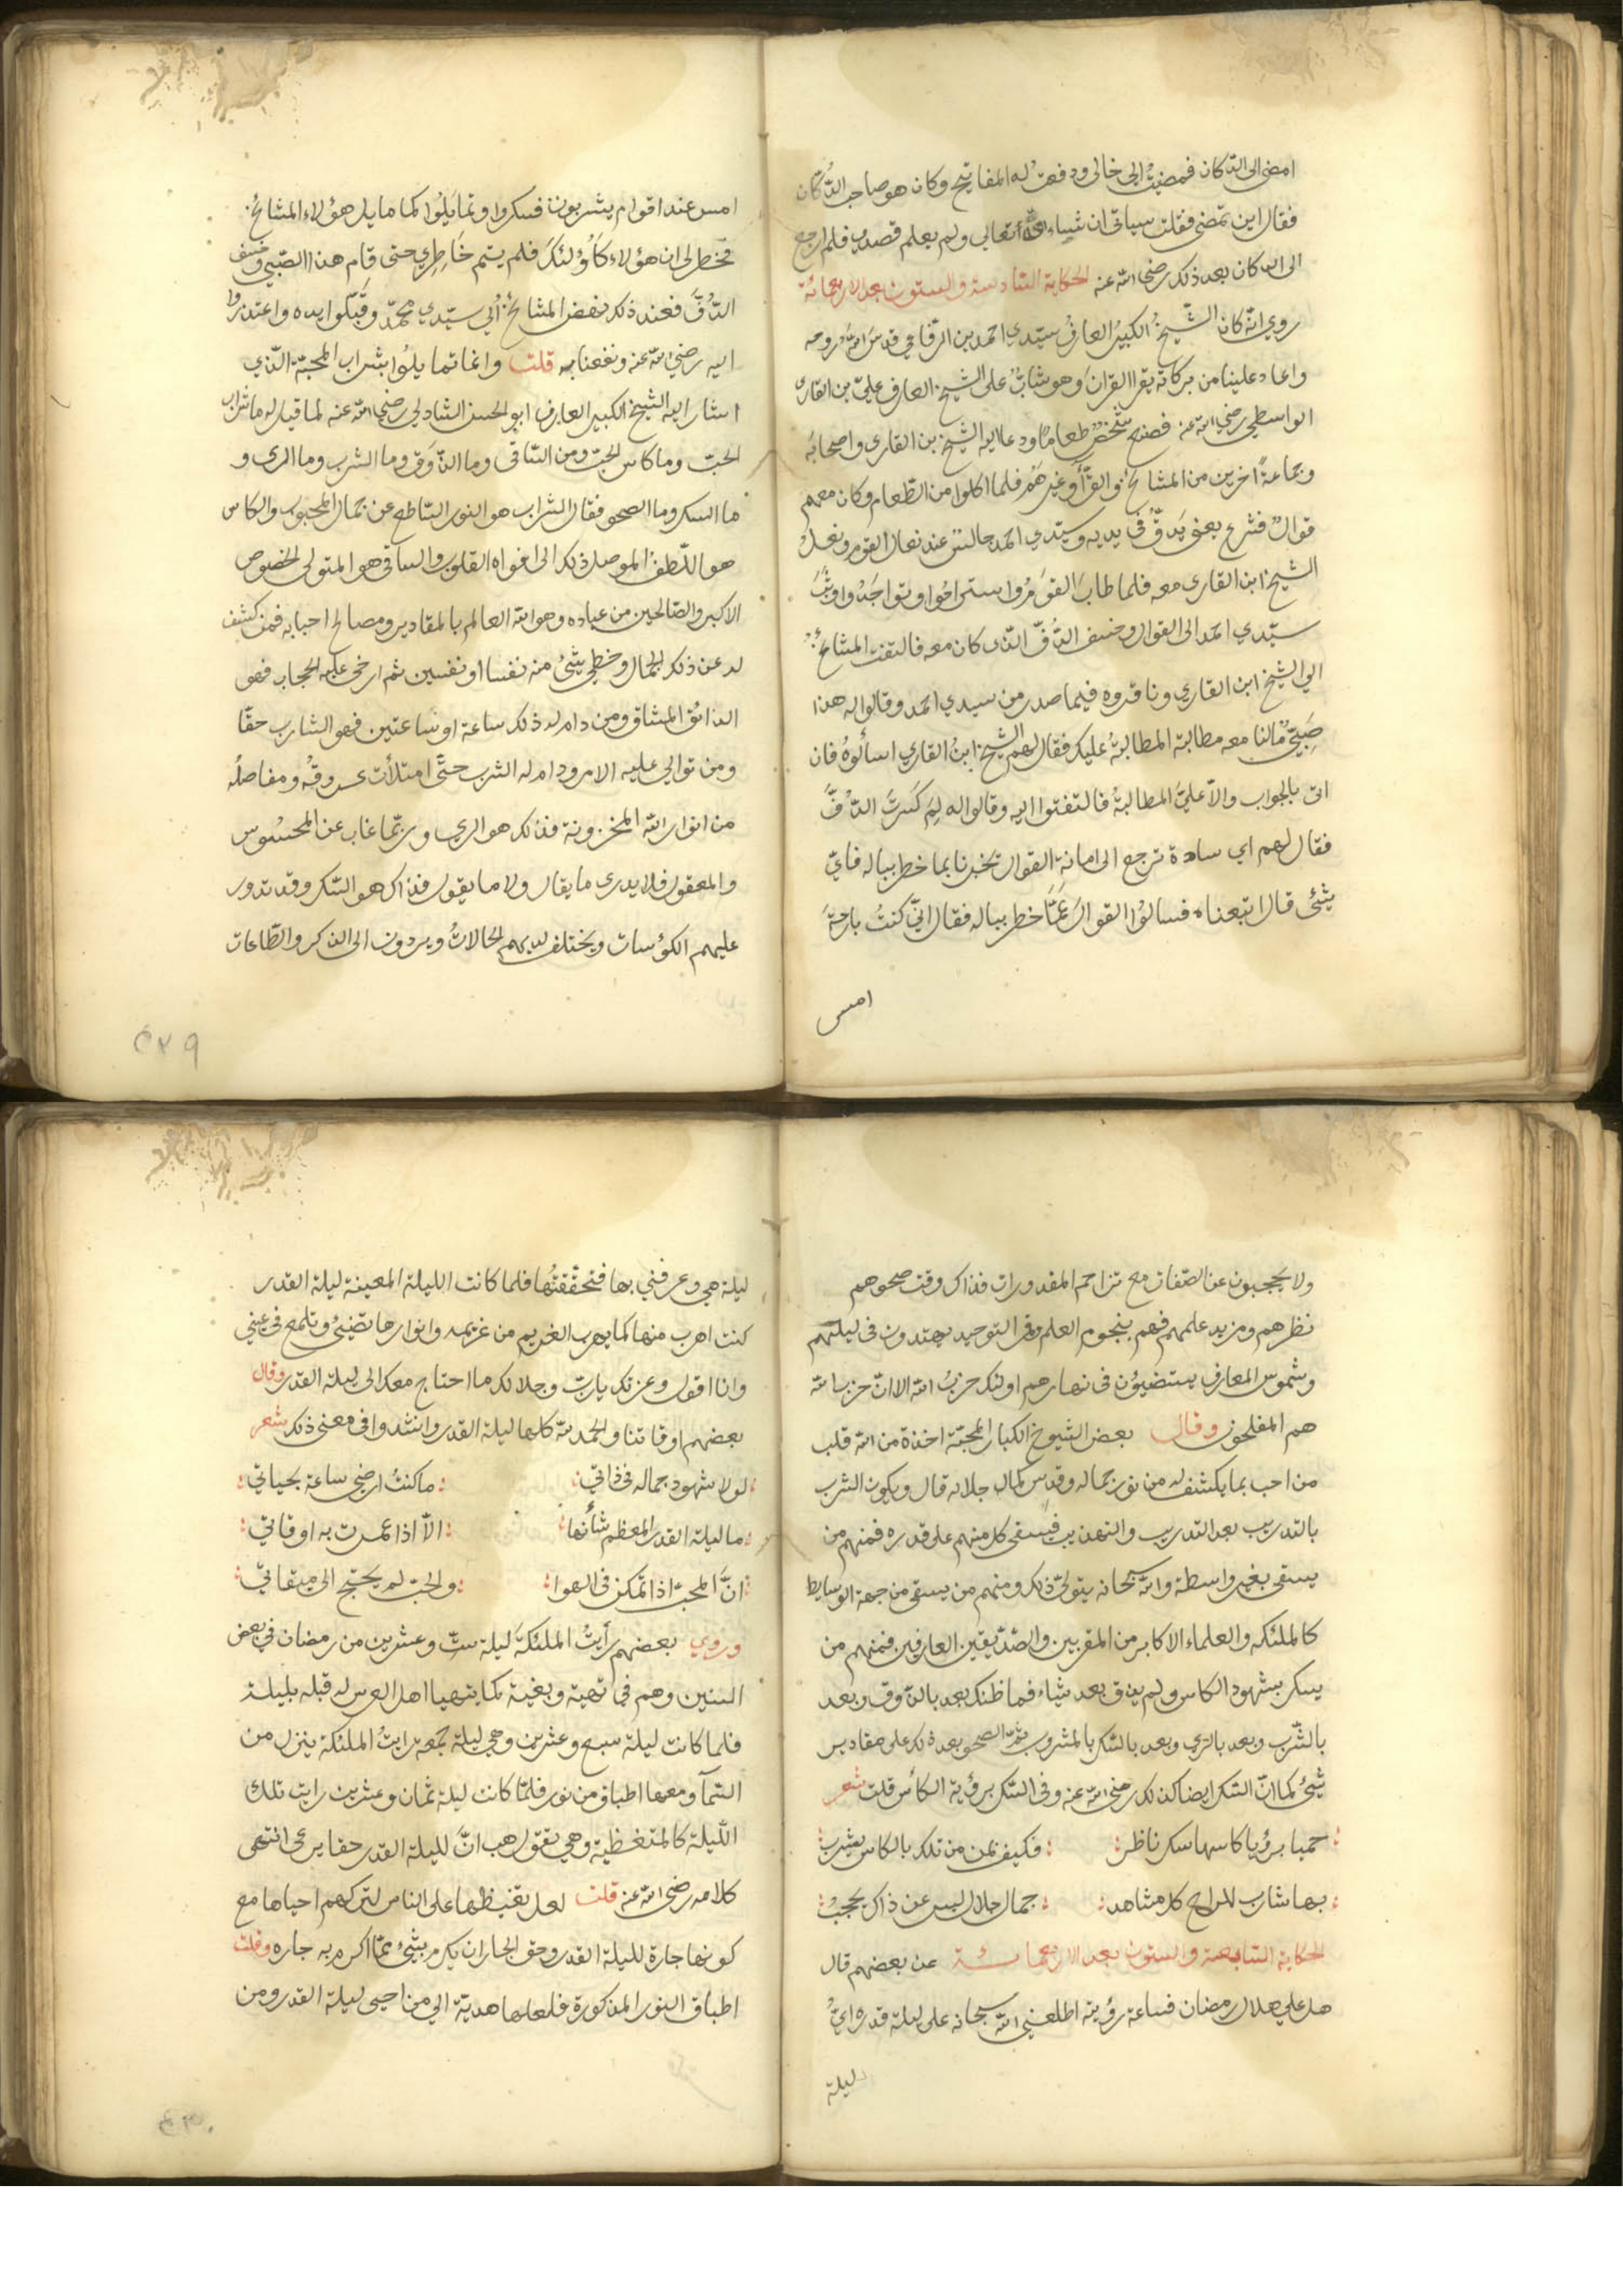 امضى الى الدكان فمضيت الى خالى ودفعت له المفاتيح وكان هو صاحب الدكان
فقال اين تمضى فقلت سياتى ان شاء الله تعالى ولم يعلم قصدى فلم ارجع
الى الدكان بعد ذلك رضى الله عنه الحكاية السادسة والستون بعد الاربعمائة
روي انه كان الشيخ الكبير العارف سيدي احمد بن الرفاعي قدس الله روحه
واعاد علينا من بركاته يقرا القران وهو شاب على الشيخ العارف علي بن القارى
الواسطي رضي الله عنه فصنع شخص طعاما ودعا اليه الشيخ بن القارى واصحابه
وجماعة اخرين من المشايخ والقرأ وغيرهم فلما اكلوا من الطعام وكان معهم
قوال فشرع يغنى بدف فى يديه وسيدي احمد جالس عند نعال القوم ونعل
الشيخ ابن القارى معه فلما طاب القوم واستراحوا وتواجدوا وثب
سيدي احمد الى القوال وخسف الدف الذى كان معه فالتفت المشائخ
الى الشيخ ابن القاري وناقروه فيما صدر من سيدي احمد وقالوا له هذا
صبي مالنا معه مطالبة المطالبة عليك فقال لهم الشيخ ابن القاري اسألوه فان
اتى بالجواب والا علي المطالبة فالتفتوا اليه وقالوا له لم كسرت الدف
فقال لهم اي سادة نرجع الى امانة القوال يخبرنا بما خطر بباله فاي
شئ قال اتبعناه فسالوا القوال عما خطر بباله فقال اني كنت بارحة
امس
امس عند اقوام يشربون فسكروا وتمايلوا كما مايل هؤلاء المشائخ
فخطر لى ان هؤلاء كاولئك فلم يتم خاطري حتى قام هذا الصبي وخسف
الدف فعند ذلك نهض المشائخ الى سيدي محمد وقبلوا يده واعتذروا
اليه رضي الله عنه ونفعنا به قلت وانما تمايلوا بشراب المحبة الذي
اشار اليه الشيخ الكبير العارف ابو الحسن الشادلى رضي الله عنه لما قيل له ما شراب
الحب وما كاس الحب ومن الساقى وما الذوق وما الشرب وما الرى و
ما السكر وما الصحو فقال الشراب هو النور الساطع عن جمال المحبوب والكاس
هو اللطف الموصل ذلك الى افواه القلوب والساقى هو المتولى الخصوص
الاكبر والصالحين من عباده وهو الله العالم بالمقادير ومصالح احبابه فمن كشف
له عن ذلك الجمال وحظي بشئ منه نفسا او نفسين ثم ارخى عليه الحجاب فهو
الذائق المشتاق ومن دام له ذلك ساعة او ساعتين فهو الشارب حقا
ومن توالى عليه الامر ودام له الشرب حتى امتلأت عروقه ومفاصله
من انوار الله المخزونة فذلك هو الري وربما غاب عن المحسوس
والمعقول فلا يدرى ما يقال ولا ما يقول فذاك هو السكر وقد تدور
عليهم الكؤسات ويختلف لديهم الحالات ويردون الى الذكر والطاعات
٤٢٩
ولا يحجبون عن الصفات مع تزاحم المقدورات فذاك وقت صحوهم
نظرهم ومزيد علمهم فهم بنجوم العلم وقمر التوحيد يهتدون فى ليلهم
وبشموس المعارف يستضيؤن فى نهارهم اولئك حزب الله الا ان حزب الله
هم المفلحون وقال بعض الشيوخ الكبار المحبة اخذة من الله قلب
من احب بما يكشف له من نور جماله وقدس كمال جلاله قال ويكون الشرب
بالتدريب بعد التدريب والتهذيب فيسقى كل منهم على قدره فمنهم من
يسقى بغير واسطة والله سبحانه يتولى ذلك ومنهم من يسقى من جهة الوسايط
كالملئكه والعلماء الاكابر من المقربين والصديقين العارفين فمنهم من
يسكر بشهود الكاس ولم يذق بعد شياء فما ظنك بعد بالذوق وبعد
بالشرب وبعد بالري وبعد بالسكر بالمشروب ثم الصحو بعد ذلك على مقادير
شيئ كما ان السكر ايضا كذلك رضي الله عنه وفى السكر برؤية الكأس قلت شعر
حميا برؤيا كاسها سكر ناظر فكيف بمن من تلك بالكاس يشرب
بها شارب للراح كل مشاهد جمال جلال ليس عن ذاك يحجب
الحكاية السابعة والستون بعد الاربعمائة عن بعضهم قال
هل علي هلال رمضان فساعة رؤيته اطلعني الله سبحانه على ليلة قدره اي
ليلة
ليلة هي وعرفني بها فتحققتها فلما كانت الليلة المعينة ليلة القدر
كنت اهرب منها كما يهرب الغريم من غريمه وانوارها تضيئ وتلمع فى عيني
وانا اقول وعزتك يا رب وجلالك ما احتاج معك الى ليلة القدر وقال
بعضهم اوقاتنا والحمد لله كلها ليلة القدر وانشدوا فى معنى ذلك شعر
لولا شهود جماله فى ذاتي ما كنت ارضى ساعة بحياتي
ما ليلة القدر المعظم شأنها الا اذا عمرت به اوقاتي
ان المحب اذا تمكن فى الهوا والحب لم يحتج الى ميقاتي
وروي بعضهم رأيت الملئكة ليلة ست وعشرين من رمضان في بعض
السنين وهم فى تهية وبغية كما يتهيا اهل العرس له قبله بليلة
فلما كانت ليلة سبع وعشرين وهي ليلة جمعه رايت الملئكة ينزل من
السمآ ومعها اطباق من نور فلما كانت ليلة ثمان وعشرين رايت تلك
الليلة كالمتغظية وهي تقول هب ان لليلة القدر حقا يرعى انتهى
كلامه رضي الله عنه قلت لعل تغيظها على الناس لتركهم احياها مع
كونها جارة لليلة القدر وحق الجار ان يكرم بشئ مما اكرم به جاره وقلت
اطباق النور المذكورة فلعلها هدية الى من احيى ليلة القدر ومن
٤٣٠